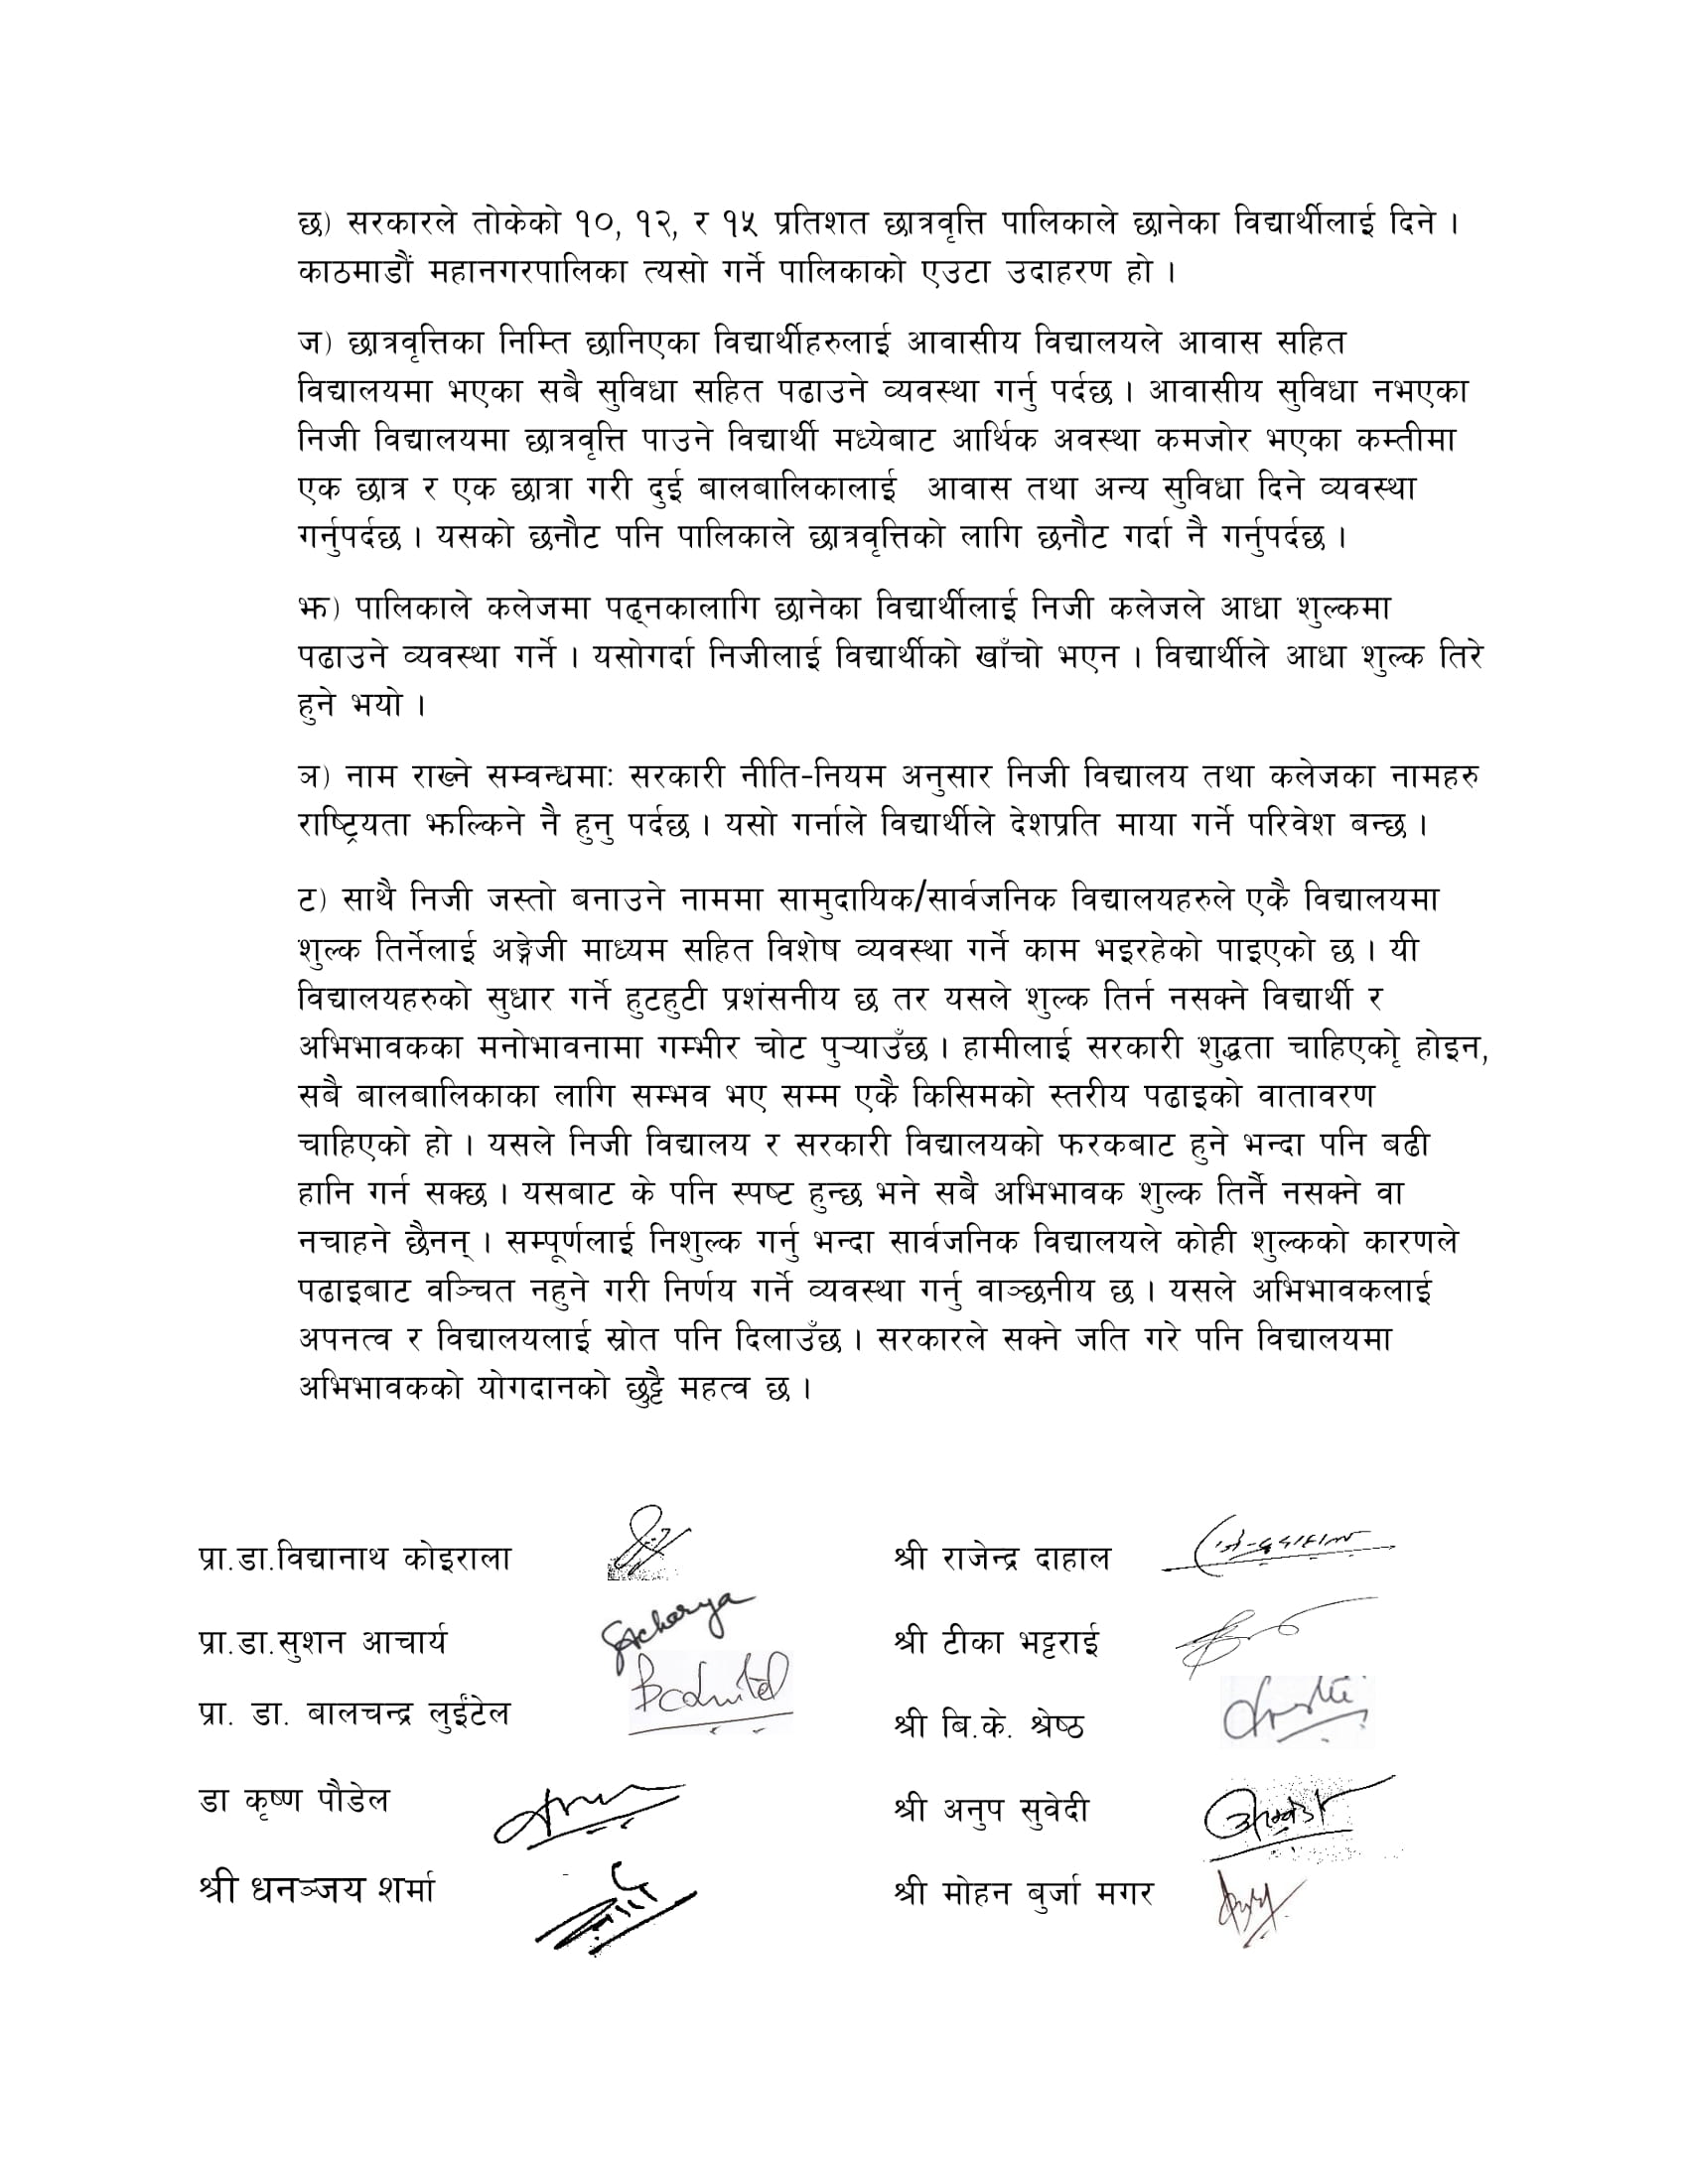 छ) सरकारले तोकेको १०, १२, र १५ प्रतिशत छात्रवृत्ति पालिकाले छानेका विद्यार्थीलाई दिने ।
काठमाडौं महानगरपालिका त्यसो गर्ने पालिकाको एउटा उदाहरण हो ।
ज) छात्रवृत्तिका निम्ति छानिएका विद्यार्थीहरुलाई आवासीय विद्यालयले आवास सहित
विद्यालयमा भएका सबै सुविधा सहित पढाउने व्यवस्था गर्नु पर्दछ । आवासीय सुविधा नभएका
निजी विद्यालयमा छात्रवृत्ति पाउने विद्यार्थी मध्येबाट आर्थिक अवस्था कमजोर भएका कम्तीमा
एक छात्र र एक छात्रा गरी दुई बालबालिकालाई आवास तथा अन्य सुविधा दिने व्यवस्था
गर्नुपर्दछ । यसको छनौट पनि पालिकाले छात्रवृत्तिको लागि छनौट गर्दा नै गर्नुपर्दछ ।
झ) पालिकाले कलेजमा पढ्नकालागि छानेका विद्यार्थीलाई निजी कलेजले आधा शुल्कमा
पढाउने व्यवस्था गर्ने । यसोगर्दा निजीलाई विद्यार्थीको खाँचो भएन । विद्यार्थीले आधा शुल्क तिरे
हुने भयो ।
ञ) नाम राख्ने सम्वन्धमाः सरकारी नीति-नियम अनुसार निजी विद्यालय तथा कलेजका नामहरु
राष्ट्रियता झल्किने नै हुनु पर्दछ । यसो गर्नाले विद्यार्थीले देशप्रति माया गर्ने परिवेश बन्छ ।
ट) साथै निजी जस्तो बनाउने नाममा सामुदायिक/सार्वजनिक विद्यालयहरुले एकै विद्यालयमा
शुल्क तिर्नेलाई अङ्ग्रेजी माध्यम सहित विशेष व्यवस्था गर्ने काम भइरहेको पाइएको छ । यी
विद्यालयहरुको सुधार गर्ने हुटहुटी प्रशंसनीय छ तर यसले शुल्क तिर्न नसक्ने विद्यार्थी र
अभिभावकका मनोभावनामा गम्भीर चोट पुऱ्याउँछ । हामीलाई सरकारी शुद्धता चाहिएकोृ होइन,
सबै बालबालिकाका लागि सम्भव भए सम्म एकै किसिमको स्तरीय पढाइको वातावरण
चाहिएको हो । यसले निजी विद्यालय र सरकारी विद्यालयको फरकबाट हुने भन्दा पनि बढी
हानि गर्न सक्छ । यसबाट के पनि स्पष्ट हुन्छ भने सबै अभिभावक शुल्क तिर्नै नसक्ने वा
नचाहने छैनन् । सम्पूर्णलाई निशुल्क गर्नु भन्दा सार्वजनिक विद्यालयले कोही शुल्कको कारणले
पढाइबाट वञ्चित नहुने गरी निर्णय गर्ने व्यवस्था गर्नु वाञ्छनीय छ । यसले अभिभावकलाई
अपनत्व र विद्यालयलाई स्रोत पनि दिलाउँछ । सरकारले सक्ने जति गरे पनि विद्यालयमा
अभिभावकको योगदानको छुट्टै महत्व छ ।
प्रा.डा.विद्यानाथ कोइराला
श्री राजेन्द्र दाहाल
प्रा.डा.सुशन आचार्य Sacharya
श्री टीका भट्टराई
प्रा. डा. बालचन्द्र लुईंटेल Bcluitel
श्री बि.के. श्रेष्ठ
डा कृष्ण पौडेल
श्री अनुप सुवेदी
श्री धनञ्जय शर्मा
श्री मोहन बुर्जा मगर